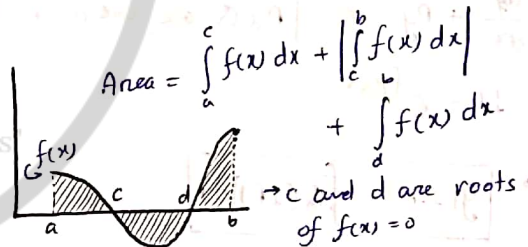 Area = \int_a^c f(x) dx + |\int_c^b f(x) dx|
+ \int_d^b f(x) dx.
f(x)
c
d
a
b
→ c and d are roots
of f(x) = 0